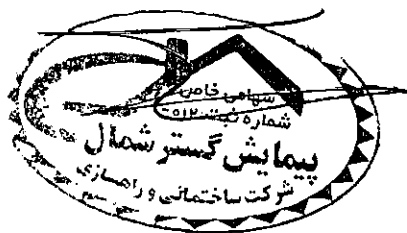 سهامی خاص
شماره ثبت ۵۰۱۲
پیمایش گستر شمال
شرکت ساختمانی و راهسازی